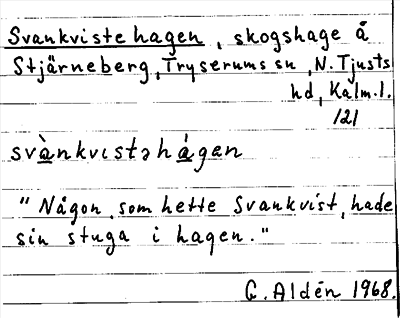 Svankvistehagen, skogshage å
Stjärneberg, Tryserums sn, N. Tjusts
hd, Kalm. l.
121
svànkvistəhágen
"Någon, som hette Svankvist, hade
sin stuga i hagen."
G. Aldén 1968.